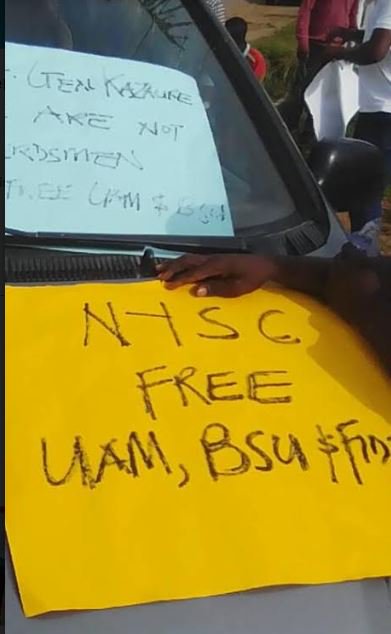 GEN KAZAURE
ARE NOT
RDSMEN
FREE UAM $ BSU
NYSC
FREE
UAM, BSU $ FID